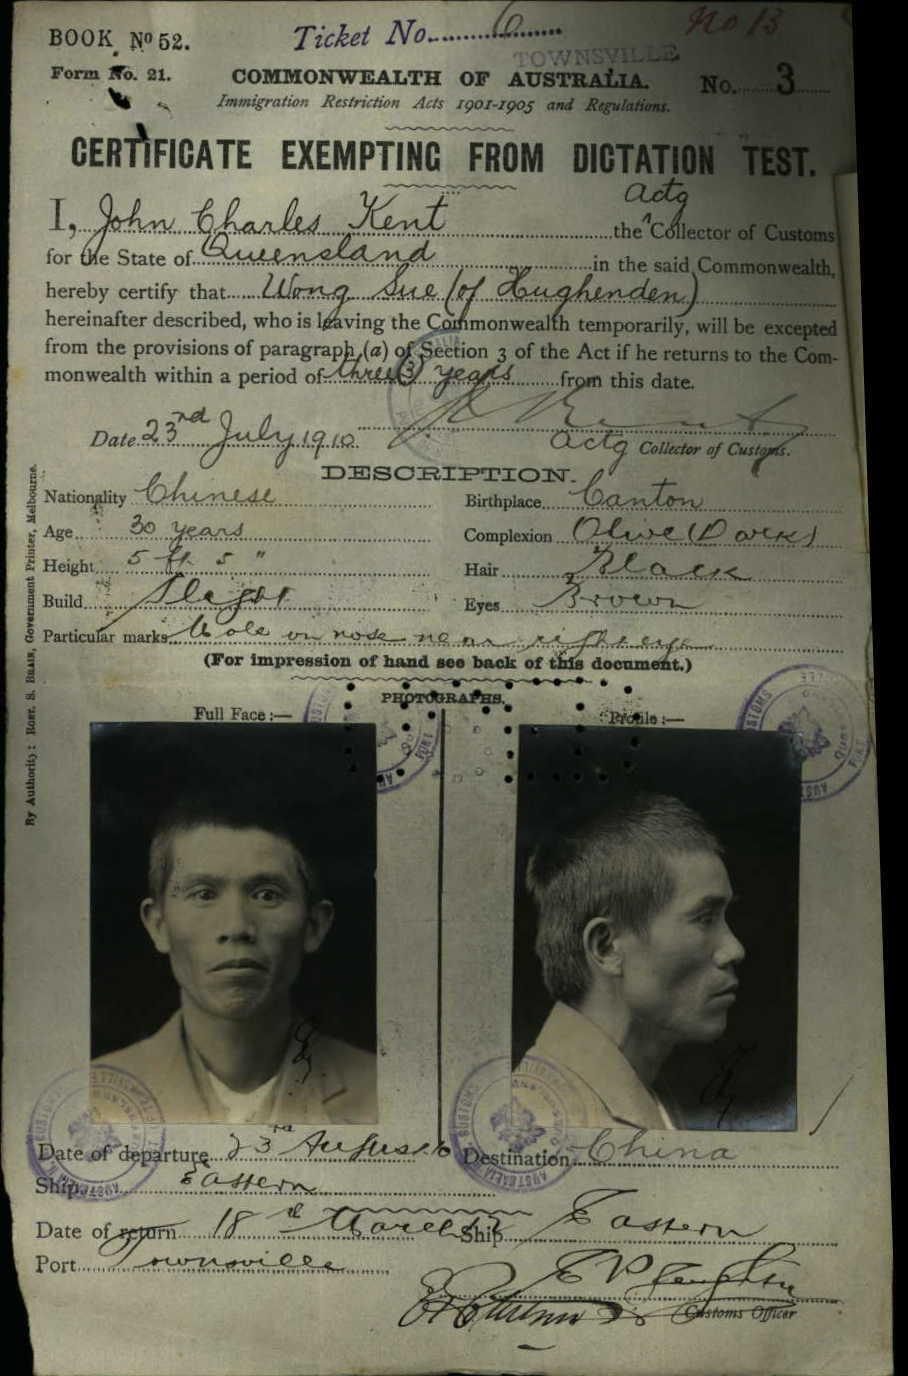 BOOK No 52.
Ticket No. 6
No 13
TOWNSVILLE
Form No. 21.
COMMONWEALTH OF AUSTRALIA.
No. 3
Immigration Restriction Acts 1901-1905 and Regulations.
CERTIFICATE EXEMPTING FROM DICTATION TEST.
I, John Charles Kent the ^ actg Collector of Customs
for the State of Queensland in the said Commonwealth,
hereby certify that Wong Sue (of Hughenden)
hereinafter described, who is leaving the Commonwealth temporarily, will be excepted
from the provisions of paragraph (a) of Section 3 of the Act if he returns to the Com-
monwealth within a period of three (3) years from this date.
Date 23rd July 1910
Actg Collector of Customs.
DESCRIPTION.
Nationality Chinese
Birthplace Canton
Age 30 years
Complexion Olive (Dark)
Height 5 ft. 5 "
Hair Black
Build Slight
Eyes Brown
Particular marks Mole on nose near right eye
(For impression of hand see back of this document.)
PHOTOGRAPHS.
Full Face :—
Profile :—
By Authority : ROBT. S. BRAIN, Government Printer, Melbourne.
Date of departure 23rd August 10
Destination China
Ship Eastern
Date of return 18th March 12
Ship Eastern
Port Townsville
Customs Officer